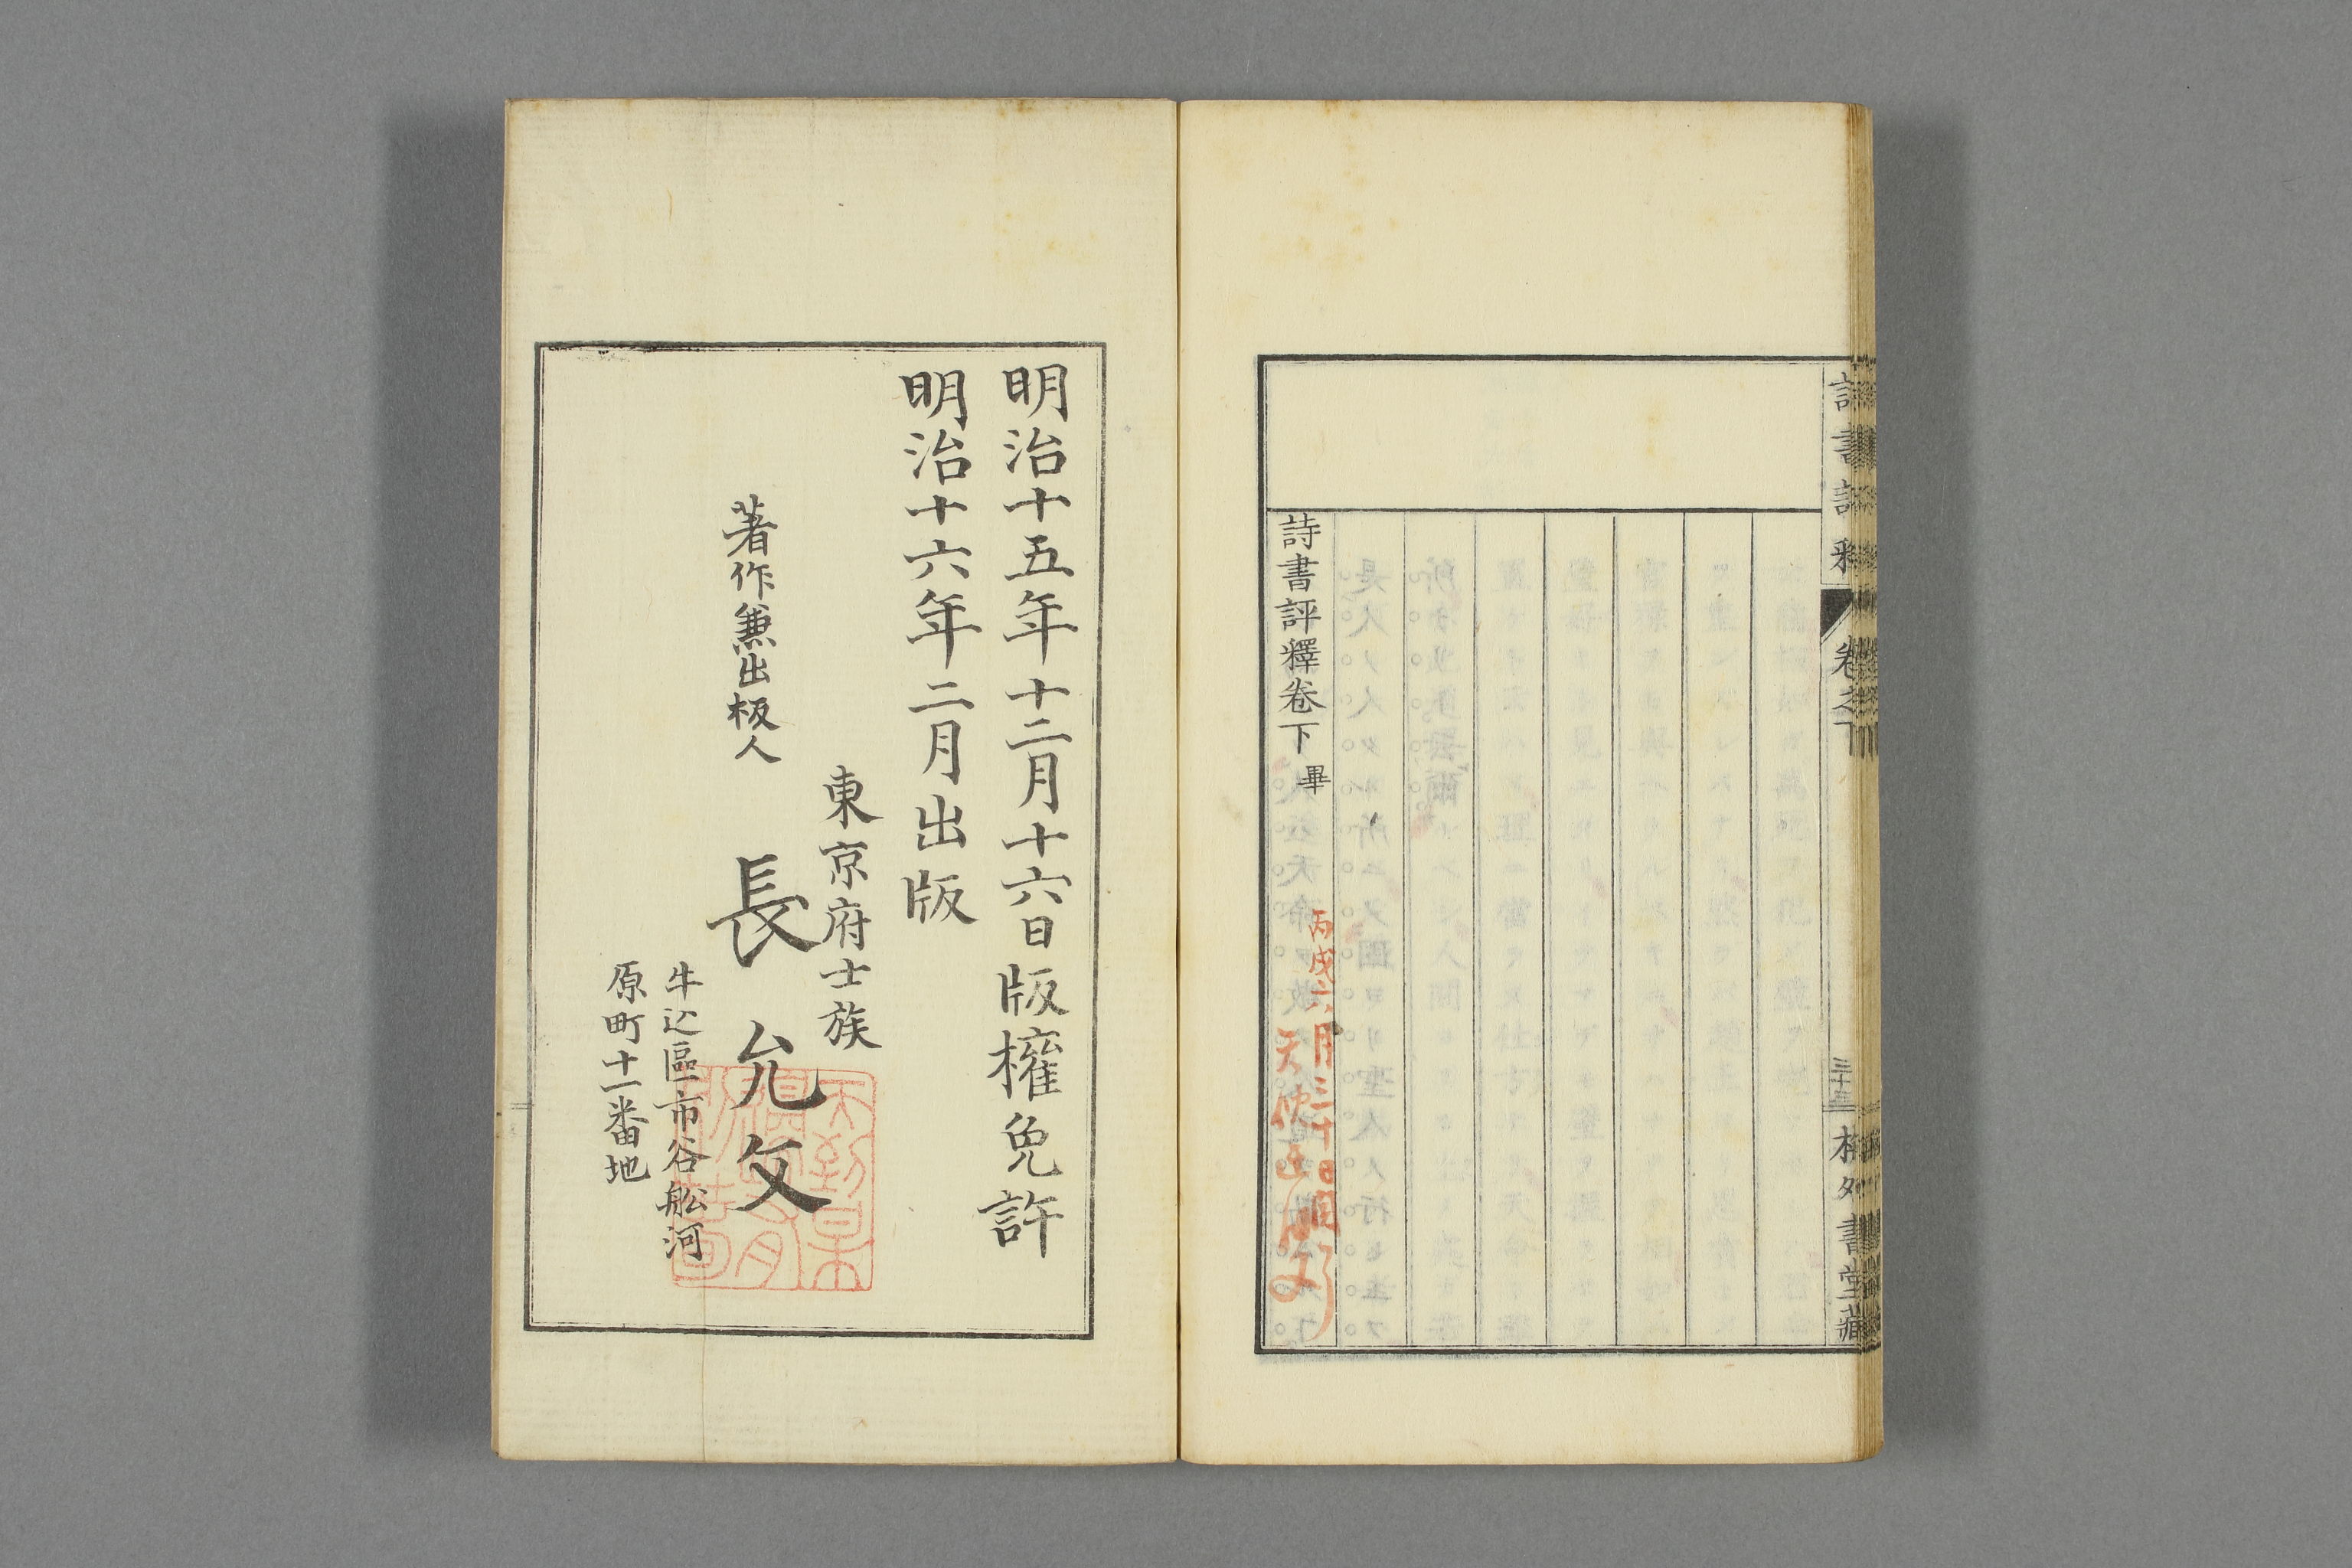 詩書評釋
卷之下
三十三
書堂藏
詩書評釋卷下畢
丙戌六月三十日閲
明治十五年十二月十六日版權免許
明治十六年二月出版
東京府士族
著作兼出板人
長允文
牛込區市谷舩河
原町十一番地